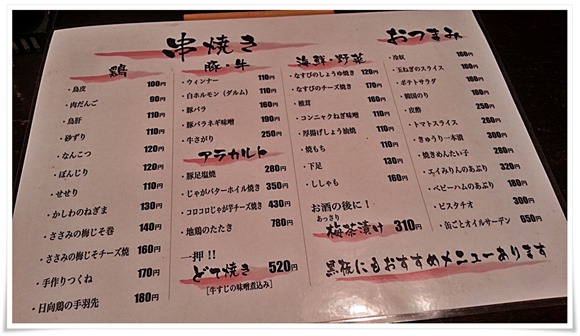 串焼き
鶏
・鳥皮 100円
・肉だんご 90円
・鳥肝 110円
・砂ずり 110円
・なんこつ 120円
・ぼんじり 120円
・せせり 110円
・かしわのねぎま 130円
・ささみの梅じそ巻 140円
・ささみの梅じそチーズ焼 160円
・手作りつくね 170円
・日向鶏の手羽先 180円
豚・牛
・ウィンナー 110円
・白ホルモン（ダルム） 110円
・豚バラ 160円
・豚バラネギ味噌 190円
・牛さがり 250円
アラカルト
・豚足塩焼 280円
・じゃがバターホイル焼き 350円
・コロコロじゃが芋チーズ焼き 430円
・地鶏のたたき 780円
一押!!
どて焼き 520円
[牛すじの味噌煮込み]
海鮮・野菜
・なすびのしょうゆ焼き 120円
・なすびのチーズ焼き 170円
・椎茸 160円
・コンニャクねぎ味噌 120円
・厚揚げしょう油焼 110円
・焼もち 110円
・下足 130円
・ししゃも 160円
お酒の後に!
あっさり
梅茶漬け 310円
おつまみ
・冷奴 160円
・玉ねぎのスライス 160円
・ポテトサラダ 160円
・韓国のり 160円
・炙酢 250円
・トマトスライス 260円
・きゅうり一本漬 300円
・焼きめんたい子 280円
・エイみりんのあぶり 320円
・ベビーハムのあぶり 180円
・ピスタチオ 300円
・缶ごとオイルサーデン 650円
黒板にもおすすめメニューあります